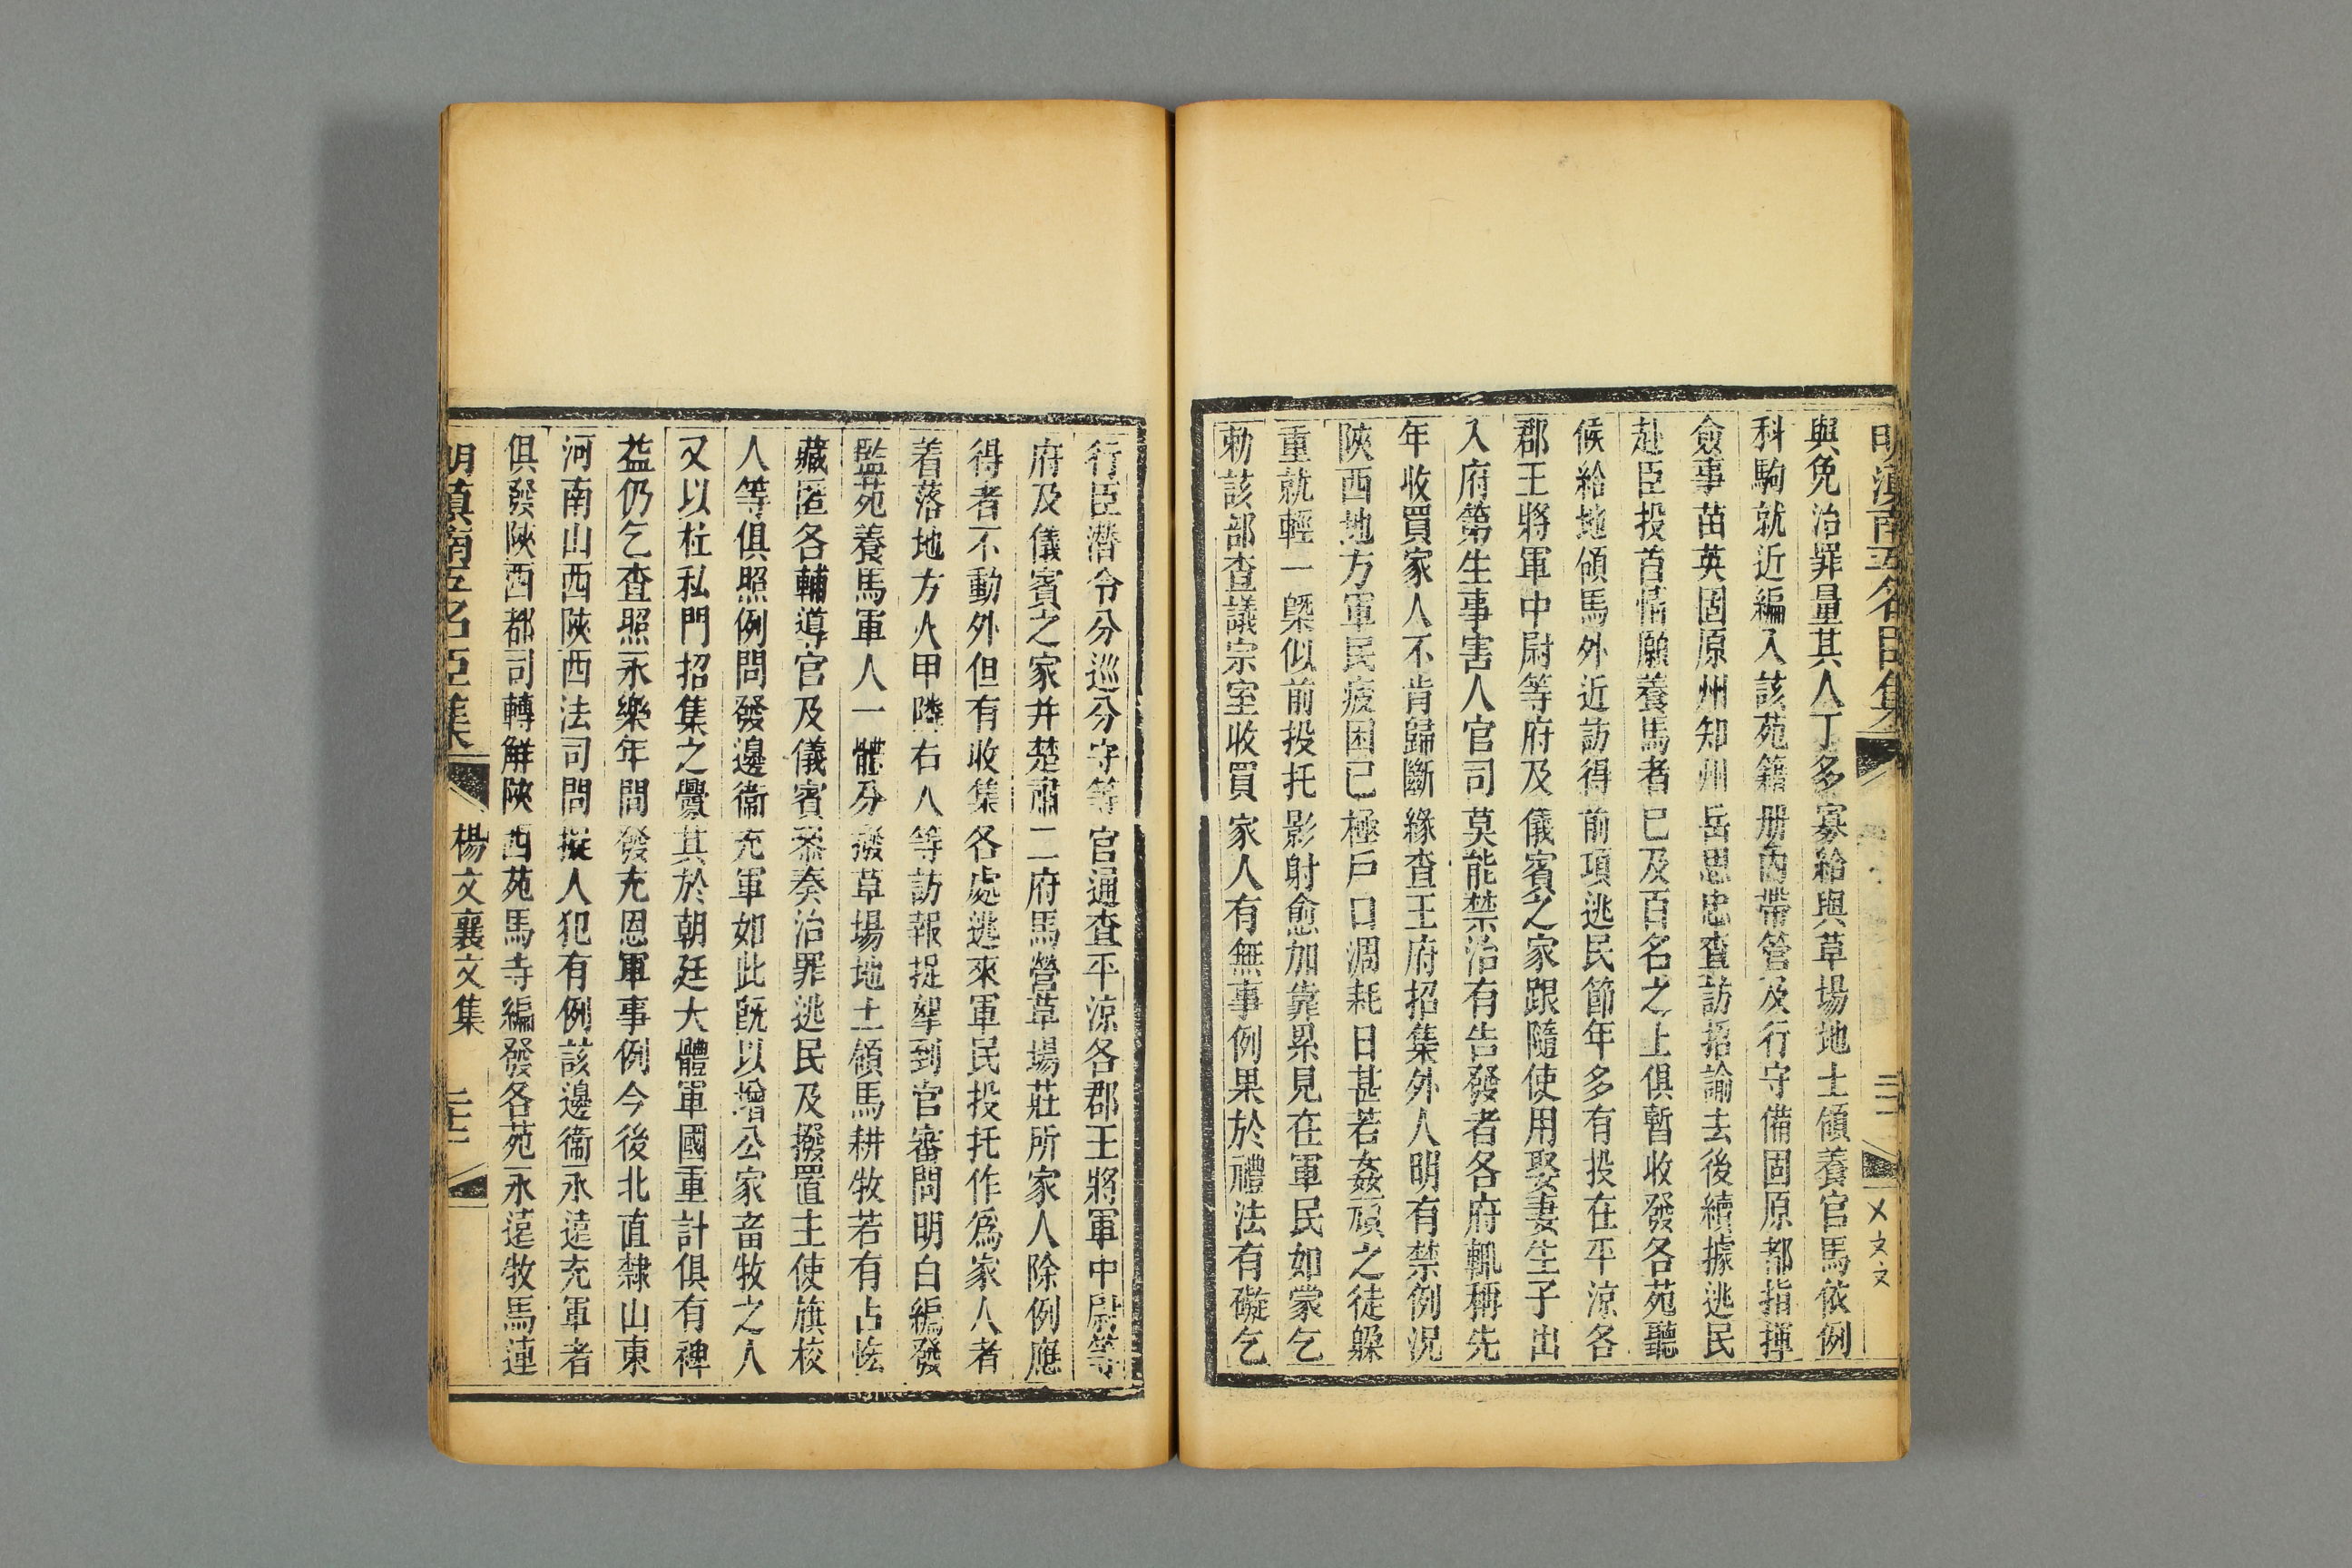 明滇南五名臣集
與免治罪量其人丁多寡給與草場地土領養官馬依例
科駒就近編入該苑籍册內帶管及行守備固原都指揮
僉事苗英固原州知州岳思忠查訪招諭去後續據逃民
赴臣投首情願養馬者已及百名之上俱暫收發各苑聽
候給地領馬外近訪得前項逃民節年多有投在平涼各
郡王將軍中尉等府及儀賓之家跟隨使用娶妻生子出
入府第生事害人官司莫能禁治有告發者各府輒稱先
年收買家人不肯歸斷緣查王府招集外人明有禁例況
陝西地方軍民疲困已極戶口凋耗日甚若姦頑之徒躱
重就輕一槩似前投托影射愈加靠累見在軍民如蒙乞
勅該部查議宗室收買家人有無事例果於禮法有礙乞
行臣潛令分巡分守等官通查平涼各郡王將軍中尉等
府及儀賓之家并楚肅二府馬營草場莊所家人除例應
得者不動外但有收集各處逃來軍民投托作爲家人者
着落地方火甲隣右人等訪報捉拏到官審問明白編發
監苑養馬軍人一體分撥草場地土領馬耕牧若有占恡
藏匿各輔導官及儀賓叅奏治罪逃民及撥置主使旗校
人等俱照例問發邊衞充軍如此旣以增公家畜牧之人
又以杜私門招集之釁其於朝廷大體軍國重計俱有裨
益仍乞查照永樂年間發充恩軍事例今後北直隸山東
河南山西陝西法司問擬人犯有例該邊衞永遠充軍者
俱發陝西都司轉解陝西苑馬寺編發各苑永遠牧馬連
明滇南五名臣集 楊文襄文集